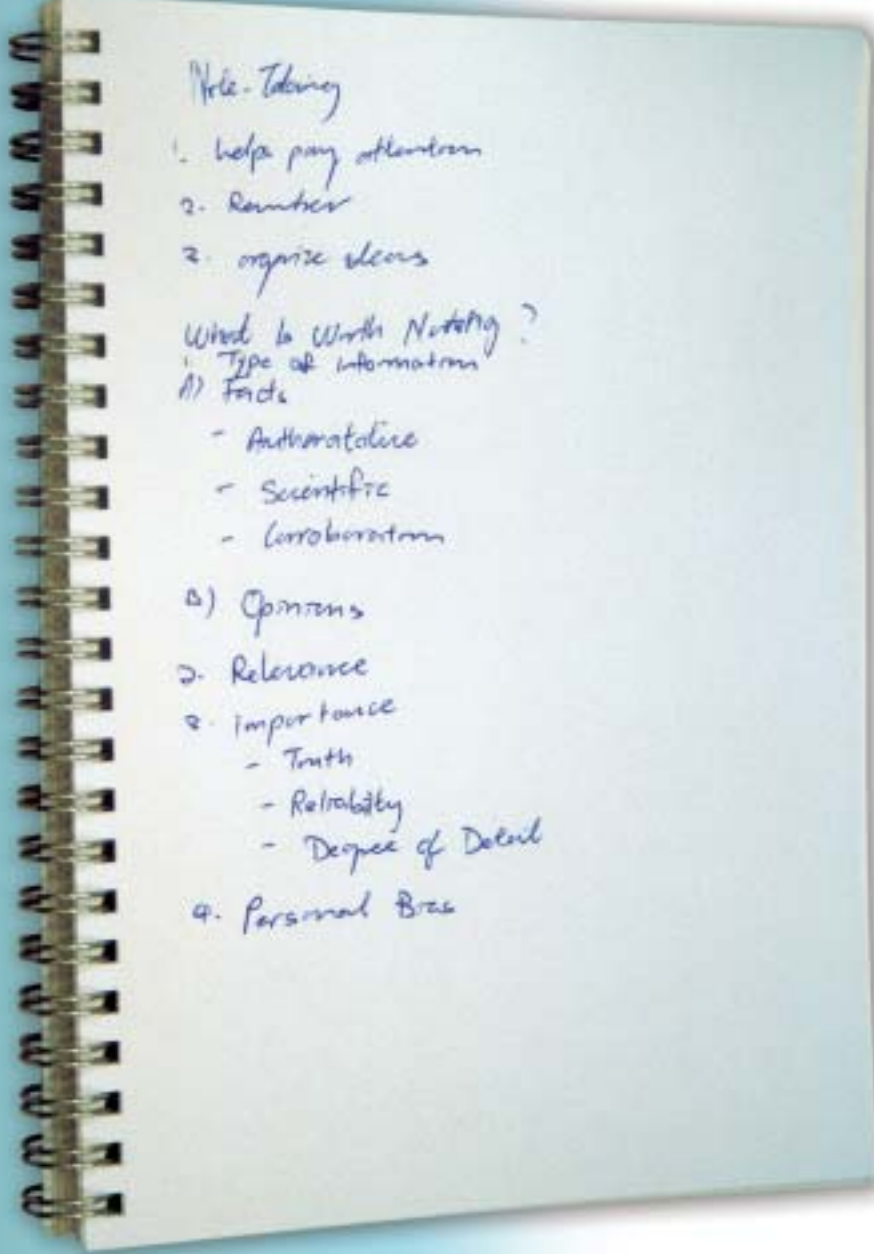 Note-Taking
1. helps pay attention
2. Remember
3. organize ideas
What is Worth Noting?
1. Type of information
A) Facts
- Authoratative
- Scientific
- Corroboration
B) Opinions
2. Relevance
3. importance
- Truth
- Reliability
- Degree of Detail
4. Personal Bias